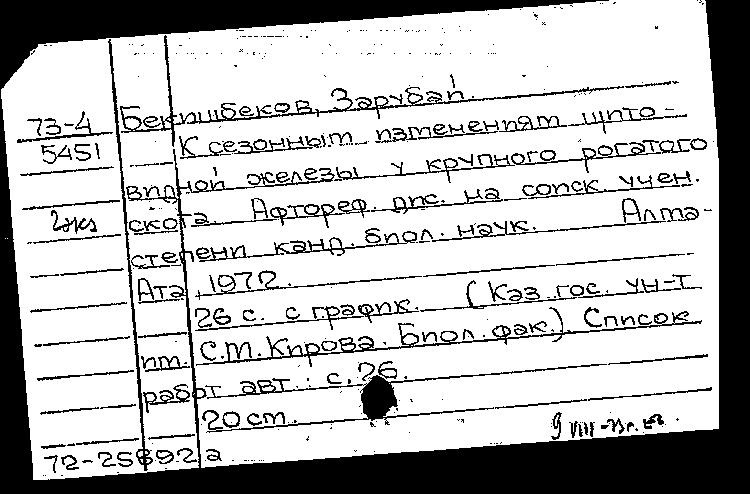 73-4 Бекишбеков, Зарубай.
5451 К сезонным изменениям щито-
видной железы у крупного рогатого
2экз скота. Афтореф. дис. на соиск. учен.
степени канд. биол. наук. Алма-
Ата, 1972.
26 с. с график. (Каз. гос. ун-т
им. С.М. Кирова. Биол. фак.). Список
работ авт.: с. 26.
20 см.
72-25692а